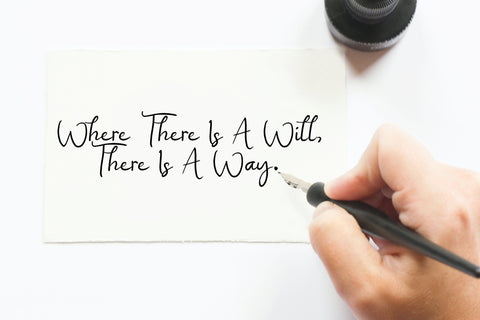 Where There Is A Will,
There Is A Way.